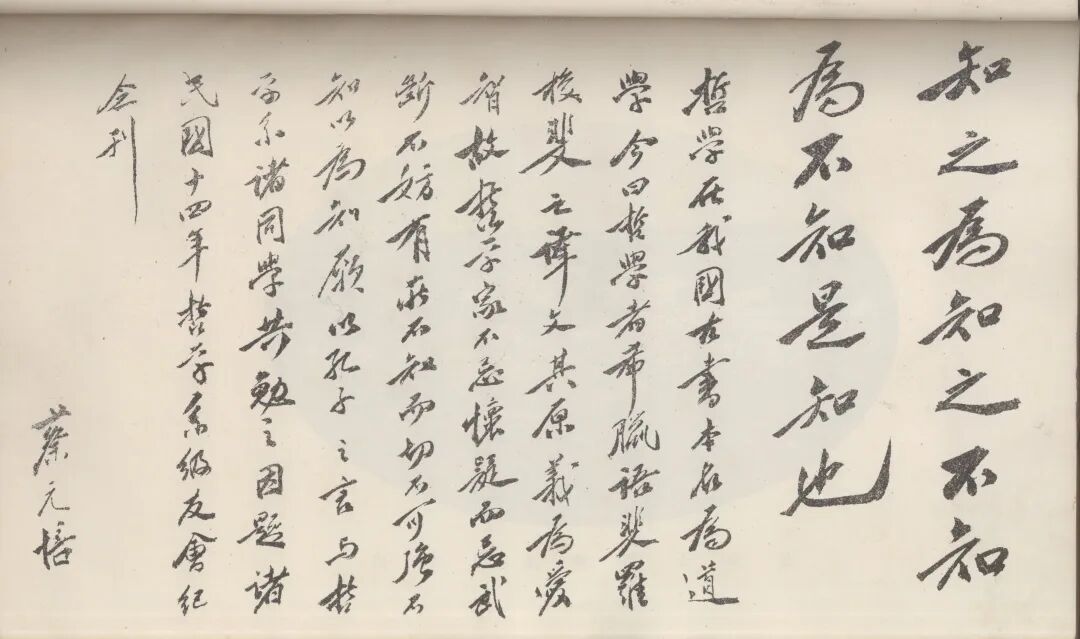 知之為知之不知
為不知是知也
哲學在我國古書本名為道
學今曰哲學者希臘語斐羅
梭斐之譯文其原義為愛
智故哲学家不忌懷疑而忌武
斷不妨有所不知而切不可強不
知以為知願以孔子之言与哲
学系諸同學共勉之因題諸
民國十四年哲学系級友會紀
念刊
蔡元培